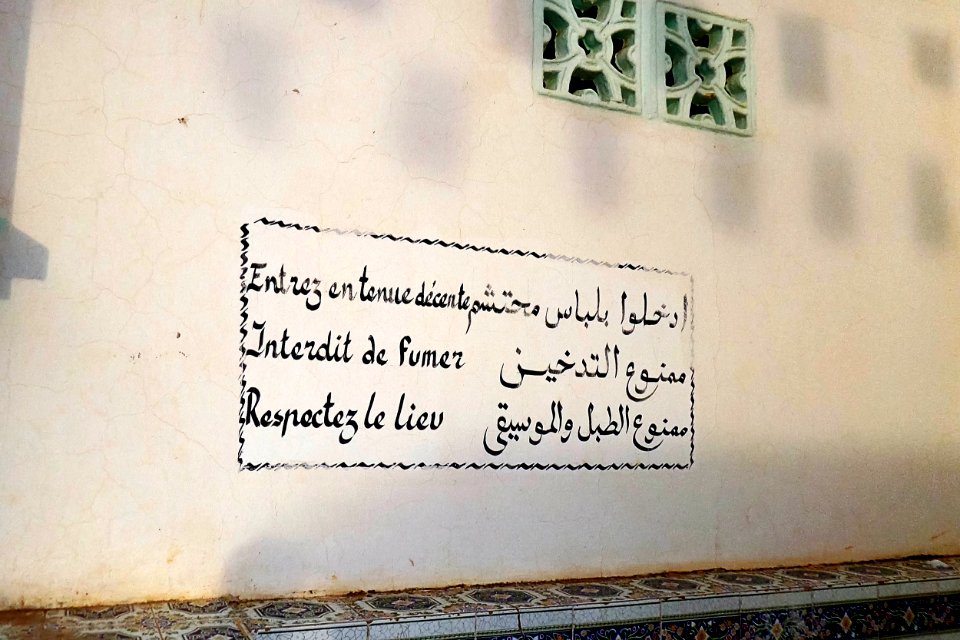 Entrez en tenue décente ادخلوا بلباس محتشم
Interdit de fumer ممنوع التدخين
Respectez le lieu ممنوع الطبل والموسيقى